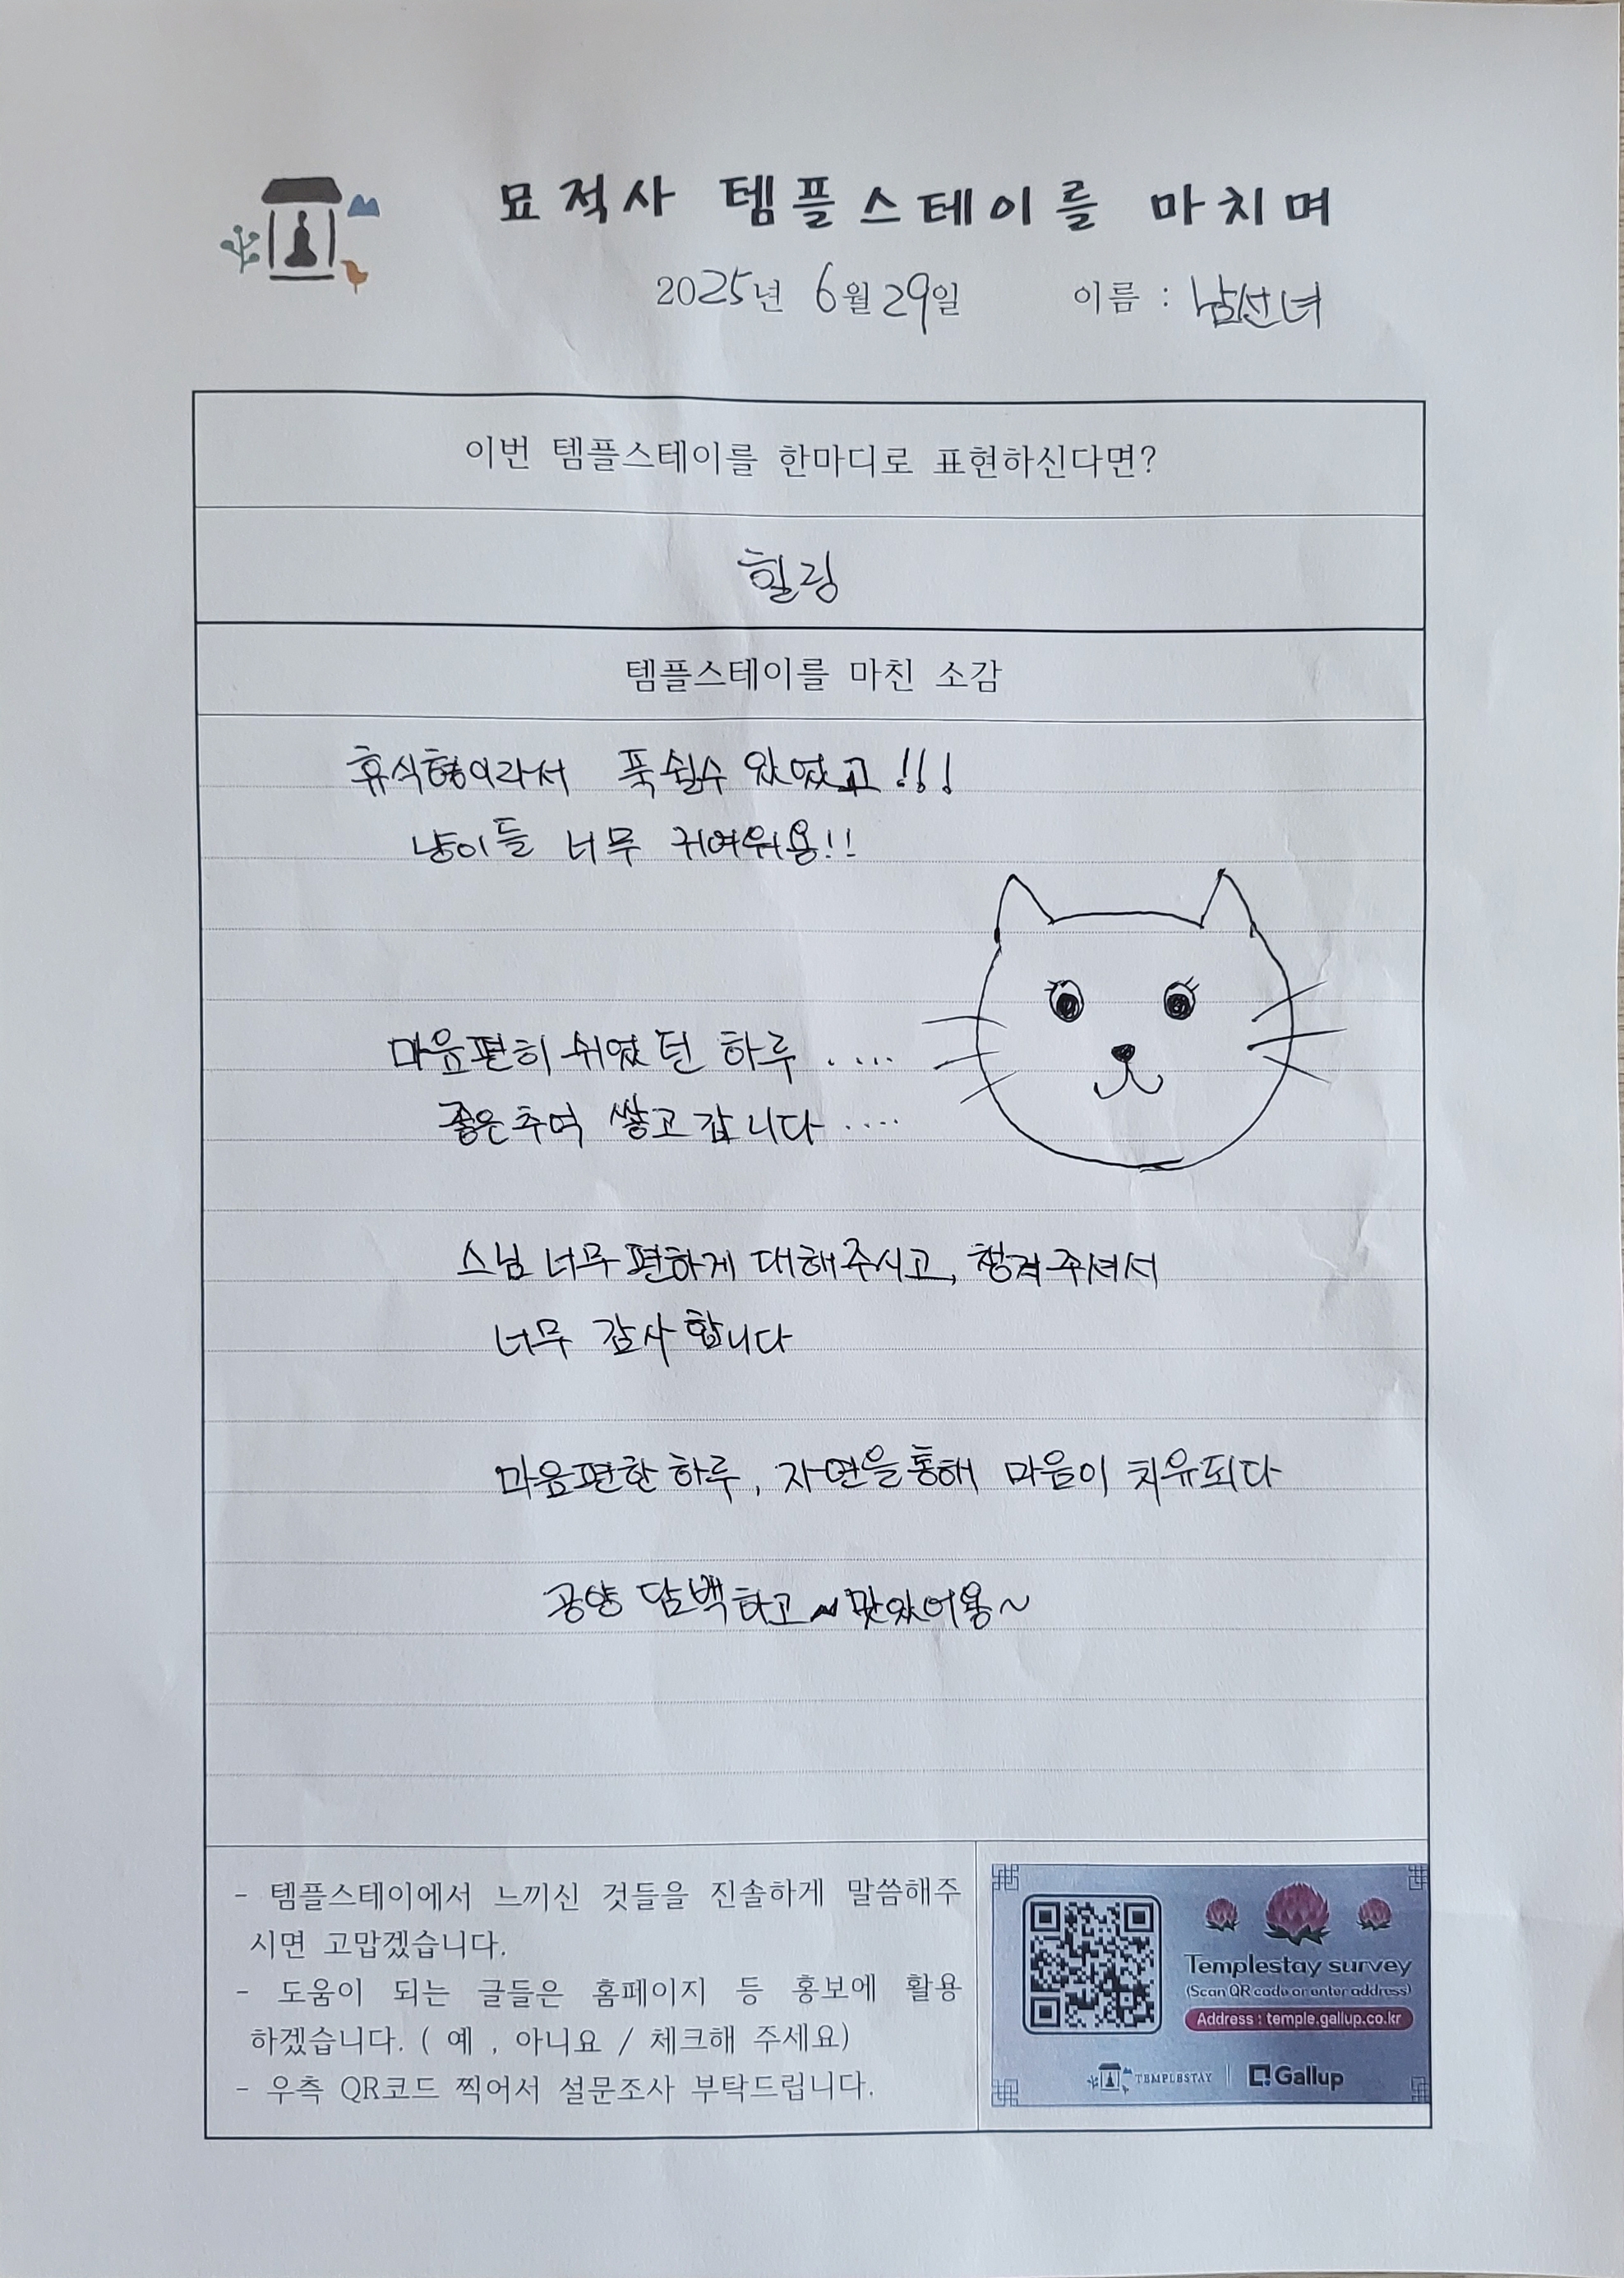 묘적사 템플스테이를 마치며
2025년 6월 29일 이름 : 남선녀
이번 템플스테이를 한마디로 표현하신다면?
힐링
템플스테이를 마친 소감
휴식형이라서 푹쉴수 있었고!!!
냥이들 너무 귀여워용!!
마음편히 쉬였던 하루 ....
좋은추억 쌓고갑니다 ....
스님 너무편하게 대해주시고, 챙겨주셔서
너무 감사합니다
마음편한 하루, 자연을통해 마음이 치유되다
공양 담백하고~맛있어용~
- 템플스테이에서 느끼신 것들을 진솔하게 말씀해주
시면 고맙겠습니다.
- 도움이 되는 글들은 홈페이지 등 홍보에 활용
하겠습니다. ( 예 , 아니요 / 체크해 주세요)
- 우측 QR코드 찍어서 설문조사 부탁드립니다.
Templestay survey
(Scan QR code or enter address)
Address : temple.gallup.co.kr
TEMPLESTAY | Gallup